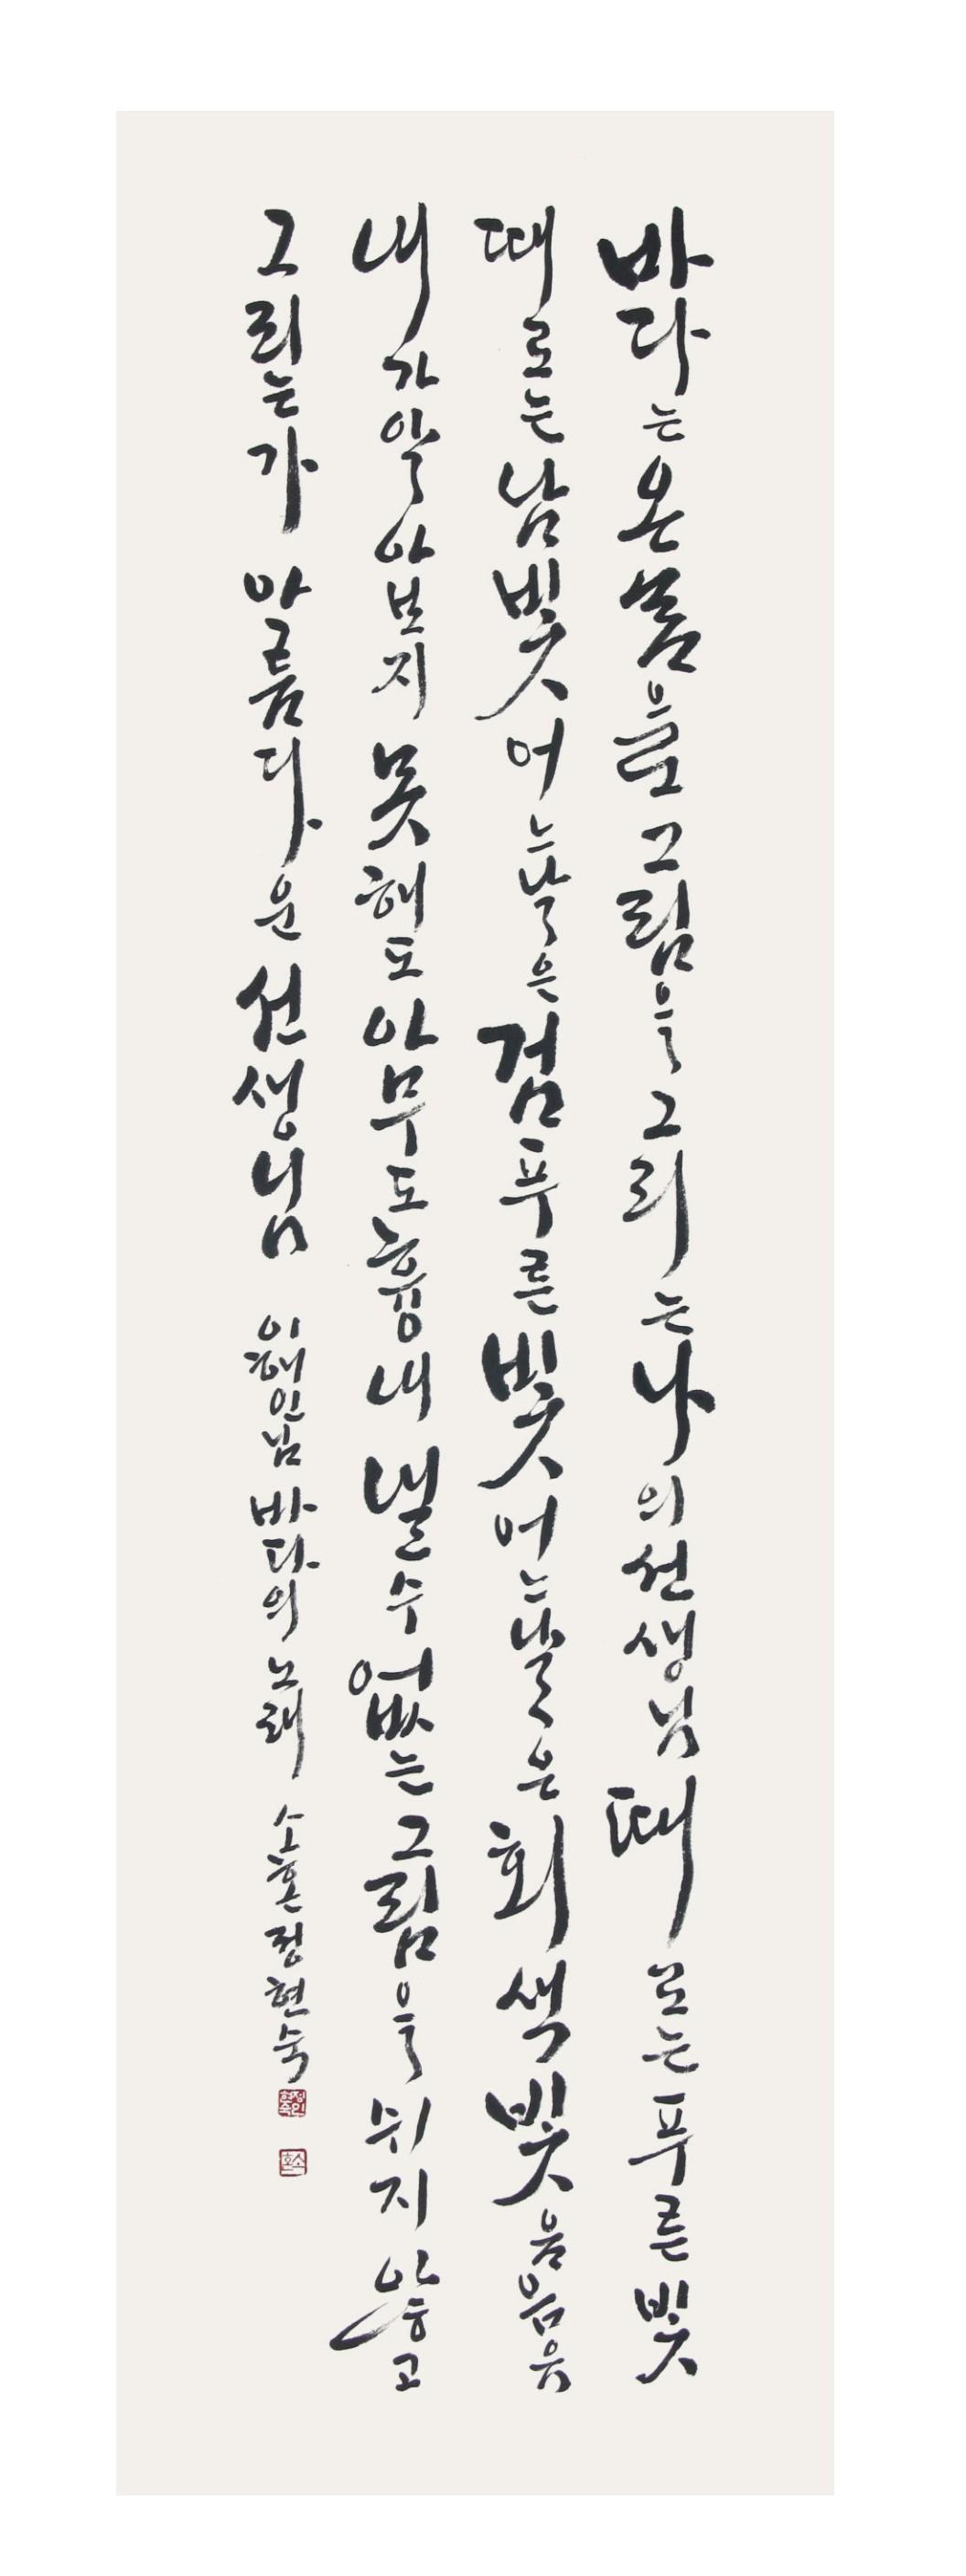 바다는 온몸으로 그림을 그리는 나의 선생님 때로는 푸른빛
때로는 남빛 어느 날은 검푸른 빛 어느 날은 회색빛 음음음
내가 알아보지 못해도 아무도 흉내 낼 수 없는 그림을 쉬지 않고
그리는가 아름다운 선생님 이해인님 바다의 노래 소혼 정현숙